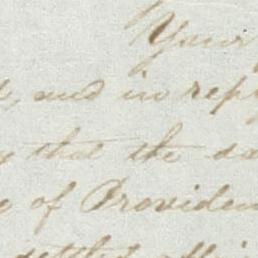 Your
, and in rep
y that the sa
e of Providen
settled